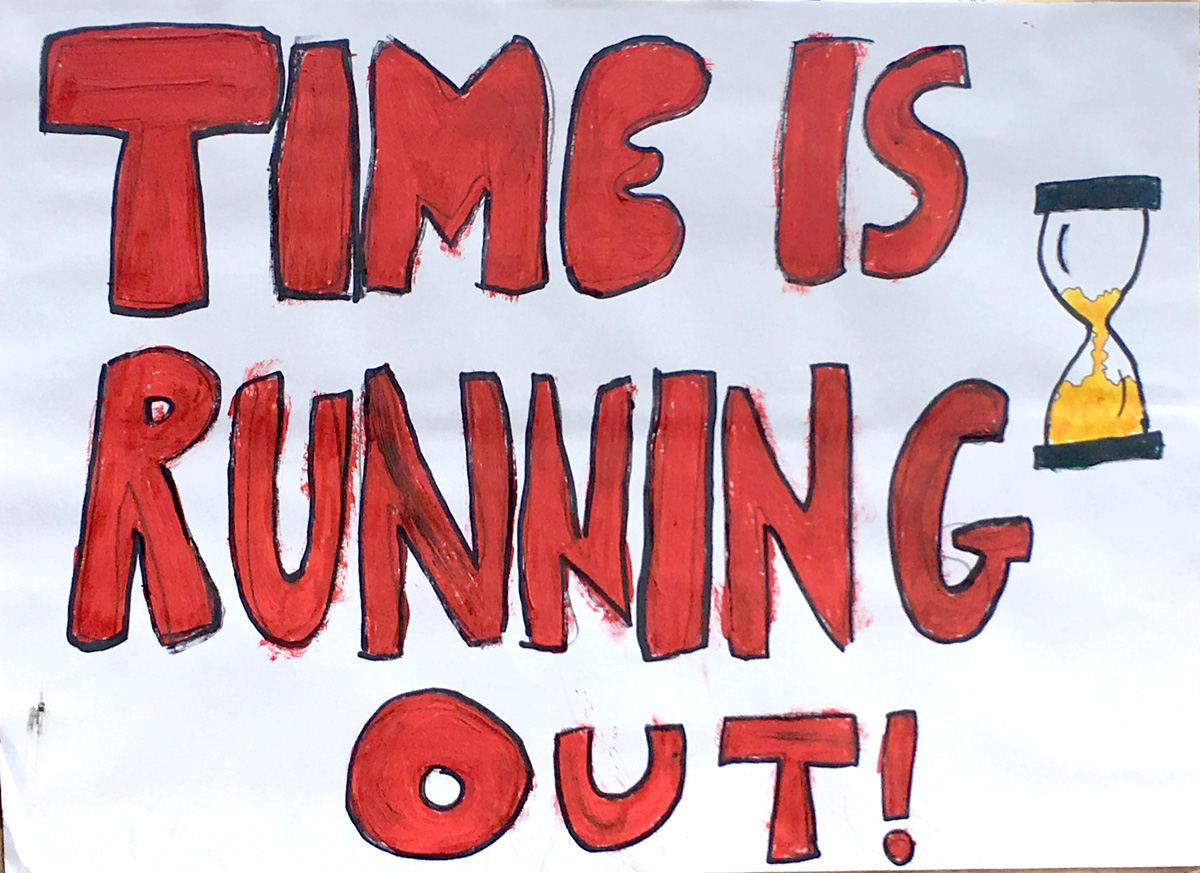 TIME IS
RUNNING
OUT!